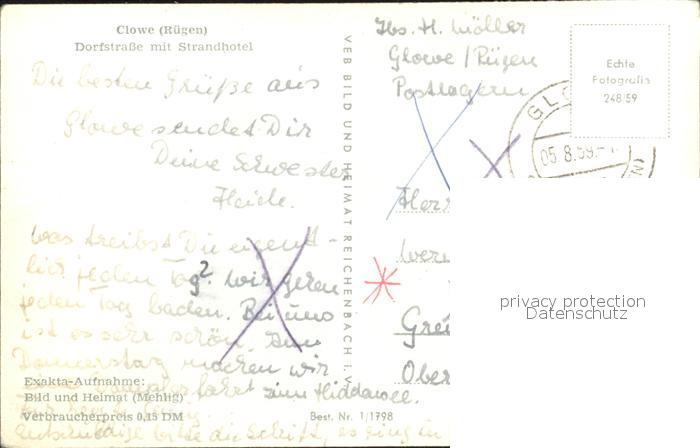 Clowe (Rügen)
Dorfstraße mit Strandhotel
Die besten Grüße aus
Glowe sendet Dir
Deine Schwester
Heide.
Was treibst Du eigent-
lich jeden Tag? Wir gehen
jeden Tag baden. Bei uns
ist es sehr schön. Am
Donnerstag machen wir
fahrt zum Hiddensee.
Exakta-Aufnahme:
Bild und Heimat (Mehlig)
Verbraucherpreis 0,15 DM
Entschuldige bitte die Schrift, es ging in
VEB BILD UND HEIMAT REICHENBACH I. V.
Best. Nr. 1/1798
Abs. H. Möller
Glowe / Rügen
Postlagern
Echte
Fotografie
248/59
GLO
05.8.59
Herr
Wern
Grei
Ober
privacy protection
Datenschutz